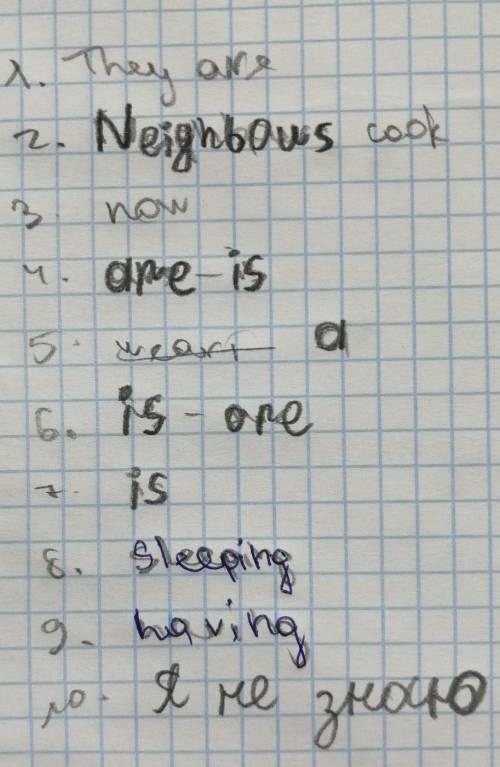 1. They are
2. Neighbous cook
3. now
4. are - is
5. wears a
6. is - are
7. is
8. sleeping
9. having
10. Я не знаю